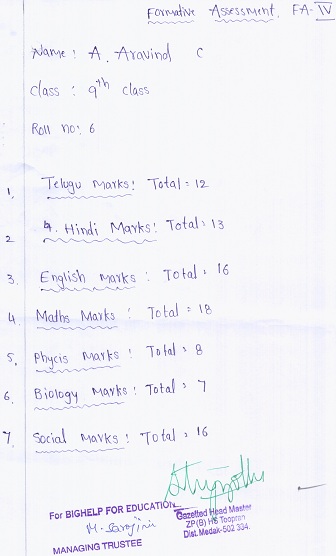 Formative Assessment. FA-IV
Name: A. Aravind C
Class: 9th class
Roll no: 6
1. Telugu Marks: Total = 12
2 4. Hindi Marks: Total: 13
3. English Marks: Total = 16
4. Maths Marks: Total = 18
5. Phycis Marks: Total = 8
6. Biology Marks: Total = 7
7. Social Marks: Total = 16
For BIGHELP FOR EDUCATION
M. Sarojini
MANAGING TRUSTEE
Gazetted Head Master
ZP(B) HS Toopran
Dist. Medak-502 334.